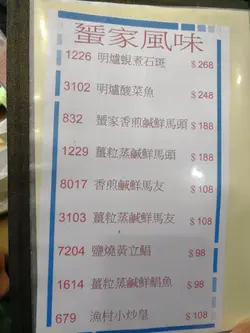 蜑家風味
1226 明爐蜆煮石斑 $268
3102 明爐酸菜魚 $248
832 蜑家香煎鹹鮮馬頭 $188
1229 薑粒蒸鹹鮮馬頭 $188
8017 香煎鹹鮮馬友 $108
3103 薑粒蒸鹹鮮馬友 $108
7204 鹽燒黃立鯧 $98
1614 薑粒蒸鹹鮮鯧魚 $98
679 漁村小炒皇 $108